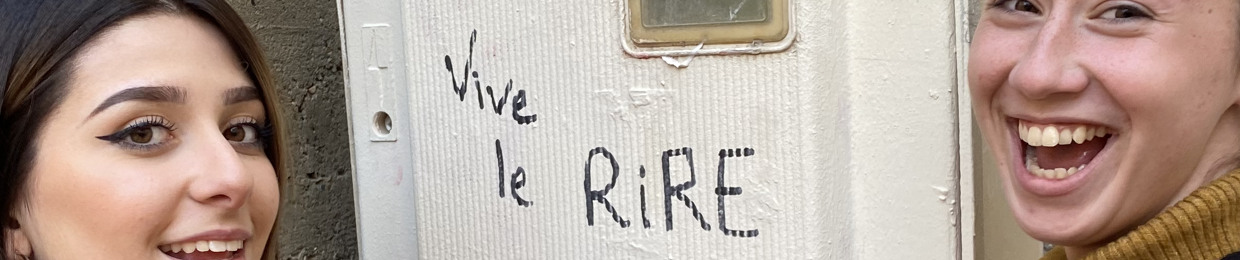 Vive
le RiRE